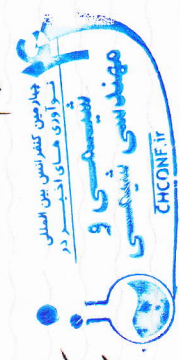 چهارمین کنفرانس بین المللی
نوآوری های اخیر در
شیمی و
مهندسی شیمی
CHCONF.ir